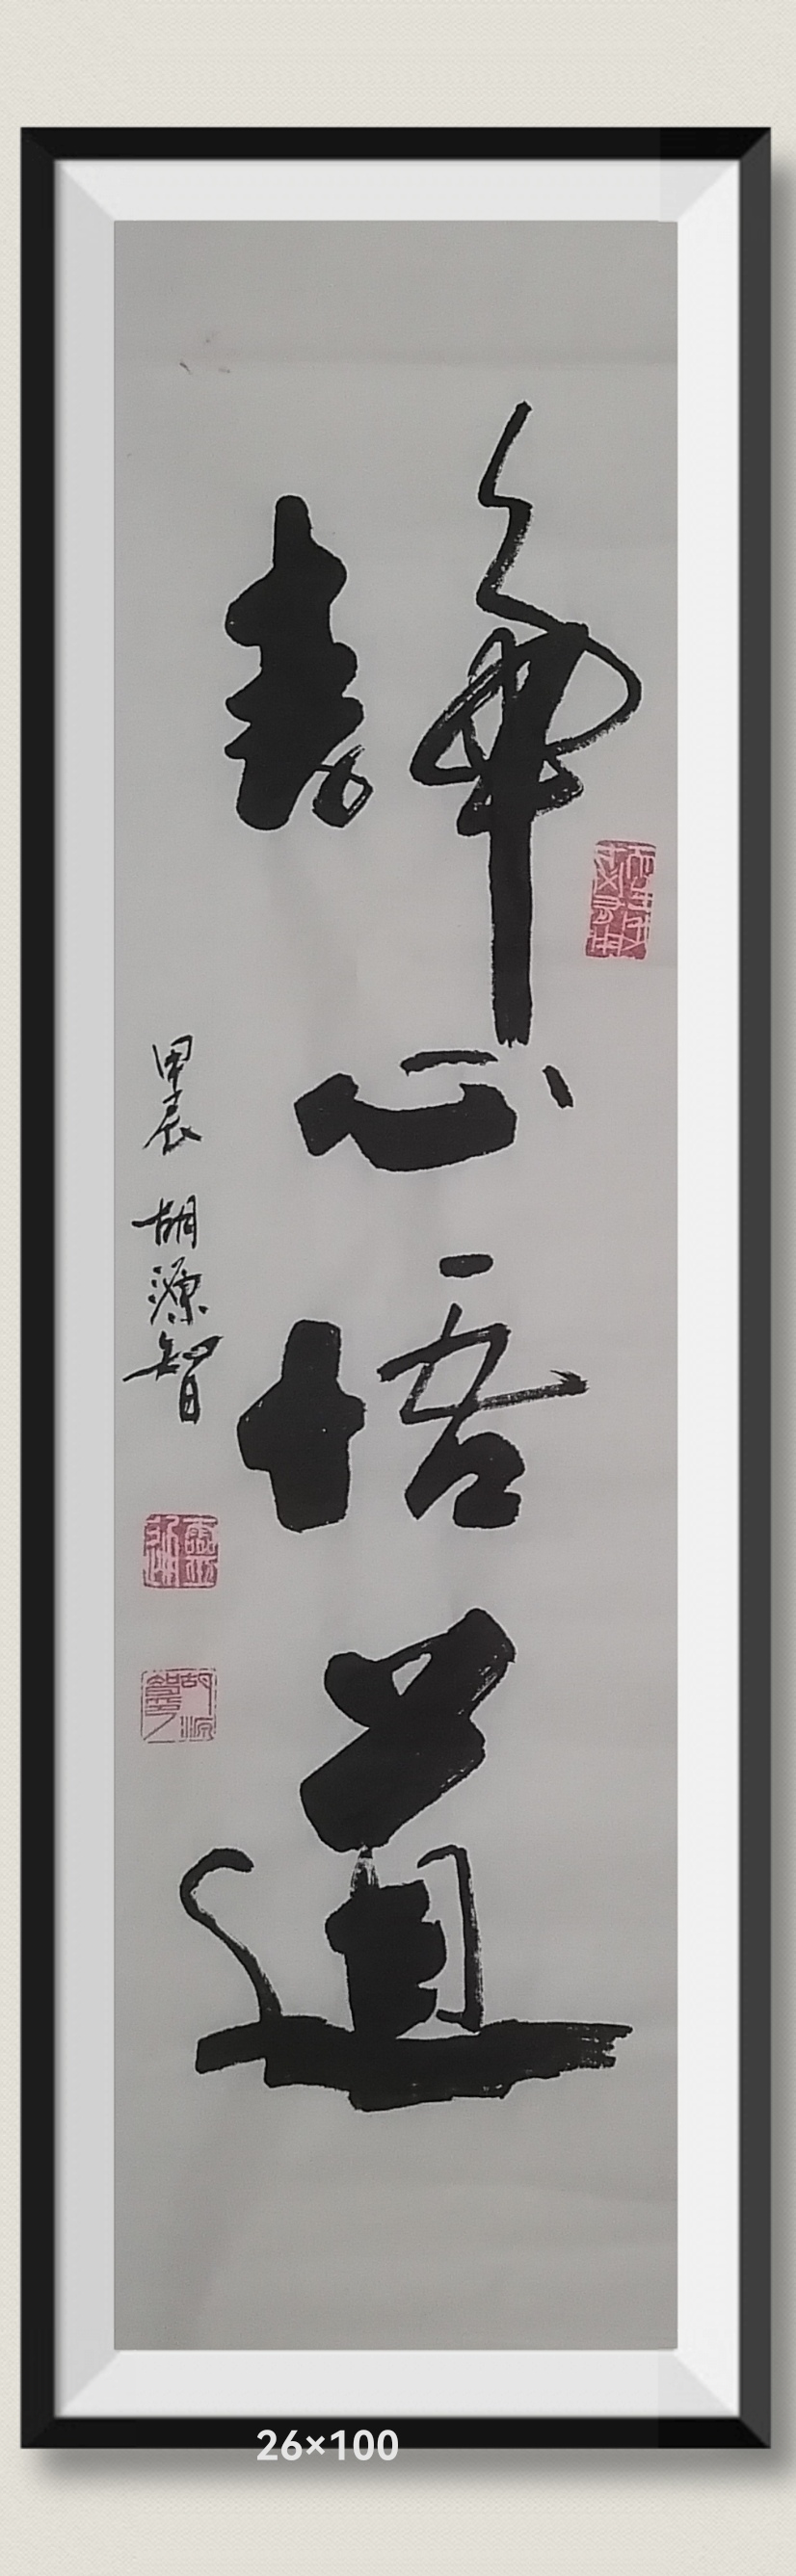 靜心悟道
甲辰 胡源智
26×100